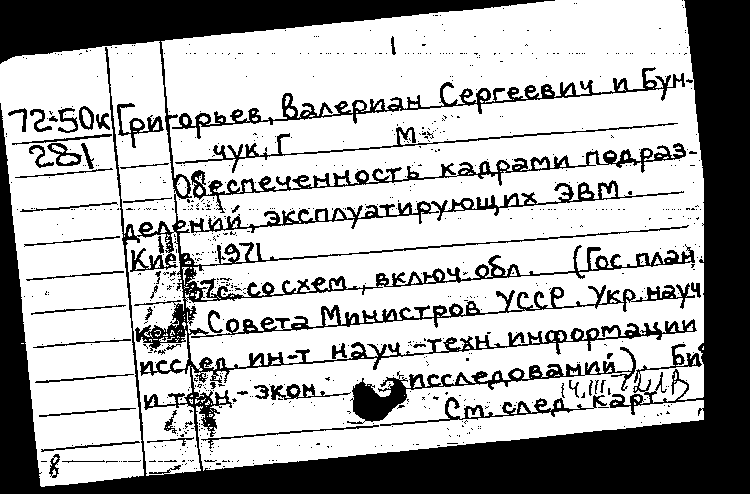 1
72-50к Григорьев, Валериан Сергеевич и Бун-
281 чук, Г М.
Обеспеченность кадрами подраз-
делений, эксплуатирующих ЭВМ.
Киев, 1971.
37с. со схем., включ. обл. (Гос. план.
ком. Совета Министров УССР. Укр. науч
исслед. ин-т науч.-техн. информации
и техн.-экон. исследований). Биб
См. след. карт.
8